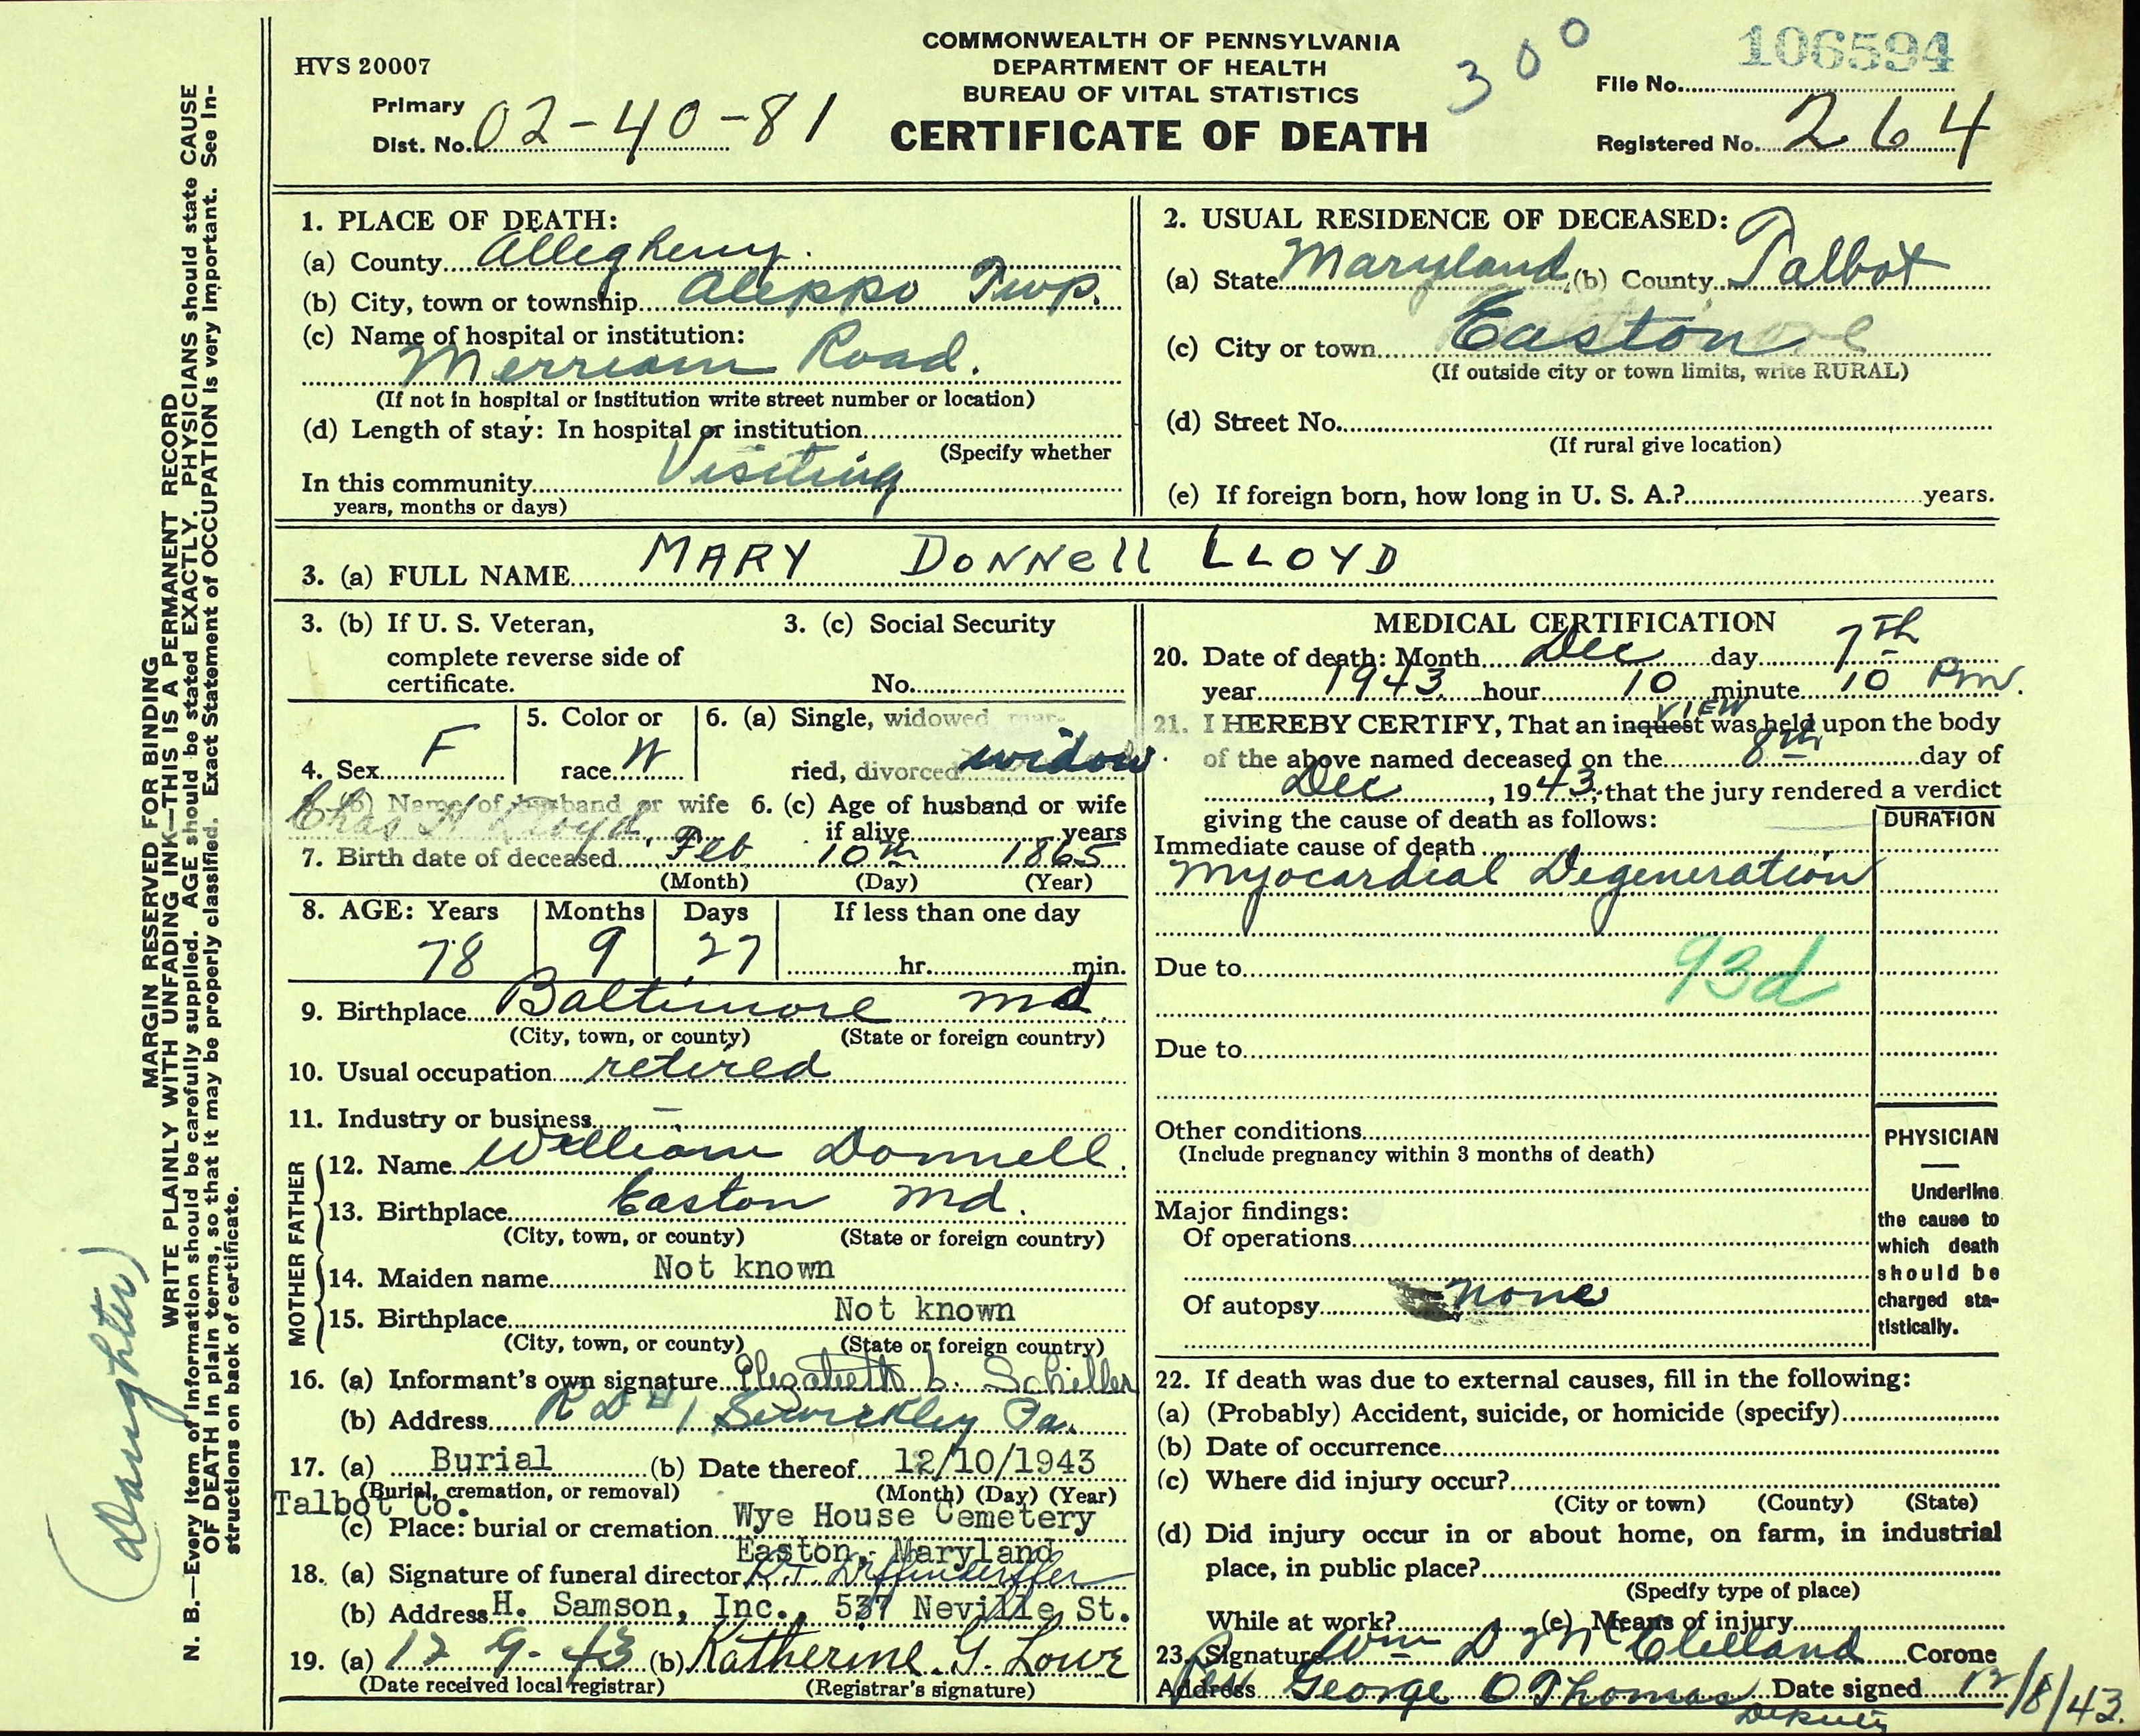 COMMONWEALTH OF PENNSYLVANIA
DEPARTMENT OF HEALTH
BUREAU OF VITAL STATISTICS
CERTIFICATE OF DEATH
HVS 20007
Primary
Dist. No. 02-40-81
300
106594
File No.
Registered No. 264
MARGIN RESERVED FOR BINDING
WRITE PLAINLY WITH UNFADING INK—THIS IS A PERMANENT RECORD
N. B.—Every item of information should be carefully supplied. AGE should be stated EXACTLY. PHYSICIANS should state CAUSE
OF DEATH in plain terms, so that it may be properly classified. Exact Statement of OCCUPATION is very important. See In-
structions on back of certificate.
(Daughter)
1. PLACE OF DEATH:
(a) County Allegheny.
(b) City, town or township Aleppo Twp.
(c) Name of hospital or institution:
Merriam Road.
(If not in hospital or institution write street number or location)
(d) Length of stay: In hospital or institution
(Specify whether
In this community Visiting
years, months or days)
2. USUAL RESIDENCE OF DECEASED:
(a) State Maryland (b) County Talbot
(c) City or town Easton
(If outside city or town limits, write RURAL)
(d) Street No.
(If rural give location)
(e) If foreign born, how long in U. S. A.? years.
3. (a) FULL NAME MARY DONNell LLOYD
3. (b) If U. S. Veteran,
complete reverse side of
certificate.
3. (c) Social Security
No.
4. Sex F
5. Color or
race W
6. (a) Single, widowed, mar-
ried, divorced widow
6. (b) Name of husband or wife
Chas H Lloyd
6. (c) Age of husband or wife
if alive years
7. Birth date of deceased Feb 10th 1865
(Month) (Day) (Year)
8. AGE: Years Months Days If less than one day
78 9 27 hr. min.
9. Birthplace Baltimore Md
(City, town, or county) (State or foreign country)
10. Usual occupation retired
11. Industry or business —
FATHER
12. Name William Donnell.
13. Birthplace Easton Md.
(City, town, or county) (State or foreign country)
MOTHER
14. Maiden name Not known
15. Birthplace Not known
(City, town, or county) (State or foreign country)
16. (a) Informant's own signature Elizabeth L. Schiller
(b) Address R D #1 Sewickley Pa.
17. (a) Burial (b) Date thereof 12/10/1943
(Burial, cremation, or removal) (Month) (Day) (Year)
Talbot Co.
(c) Place: burial or cremation Wye House Cemetery
Easton, Maryland
18. (a) Signature of funeral director R.T. Diffenderffer
(b) Address H. Samson, Inc., 537 Neville St.
19. (a) 12 9-43 (b) Katherine G. Lowe
(Date received local registrar) (Registrar's signature)
MEDICAL CERTIFICATION
20. Date of death: Month Dec day 7th
year 1943 hour 10 minute 10 Pm.
VIEW
21. I HEREBY CERTIFY, That an inquest was held upon the body
of the above named deceased on the 8th day of
Dec, 1943; that the jury rendered a verdict
giving the cause of death as follows:
DURATION
Immediate cause of death
Myocardial Degeneration
93d
Due to
Due to
Other conditions
(Include pregnancy within 3 months of death)
Major findings:
Of operations
Of autopsy none
PHYSICIAN
Underline
the cause to
which death
should be
charged sta-
tistically.
22. If death was due to external causes, fill in the following:
(a) (Probably) Accident, suicide, or homicide (specify)
(b) Date of occurrence
(c) Where did injury occur?
(City or town) (County) (State)
(d) Did injury occur in or about home, on farm, in industrial
place, in public place?
(Specify type of place)
While at work? (e) Means of injury
23. Signature Wm D McClelland Corone
Address Per George O Thomas Date signed 12/8/43.
Deputy